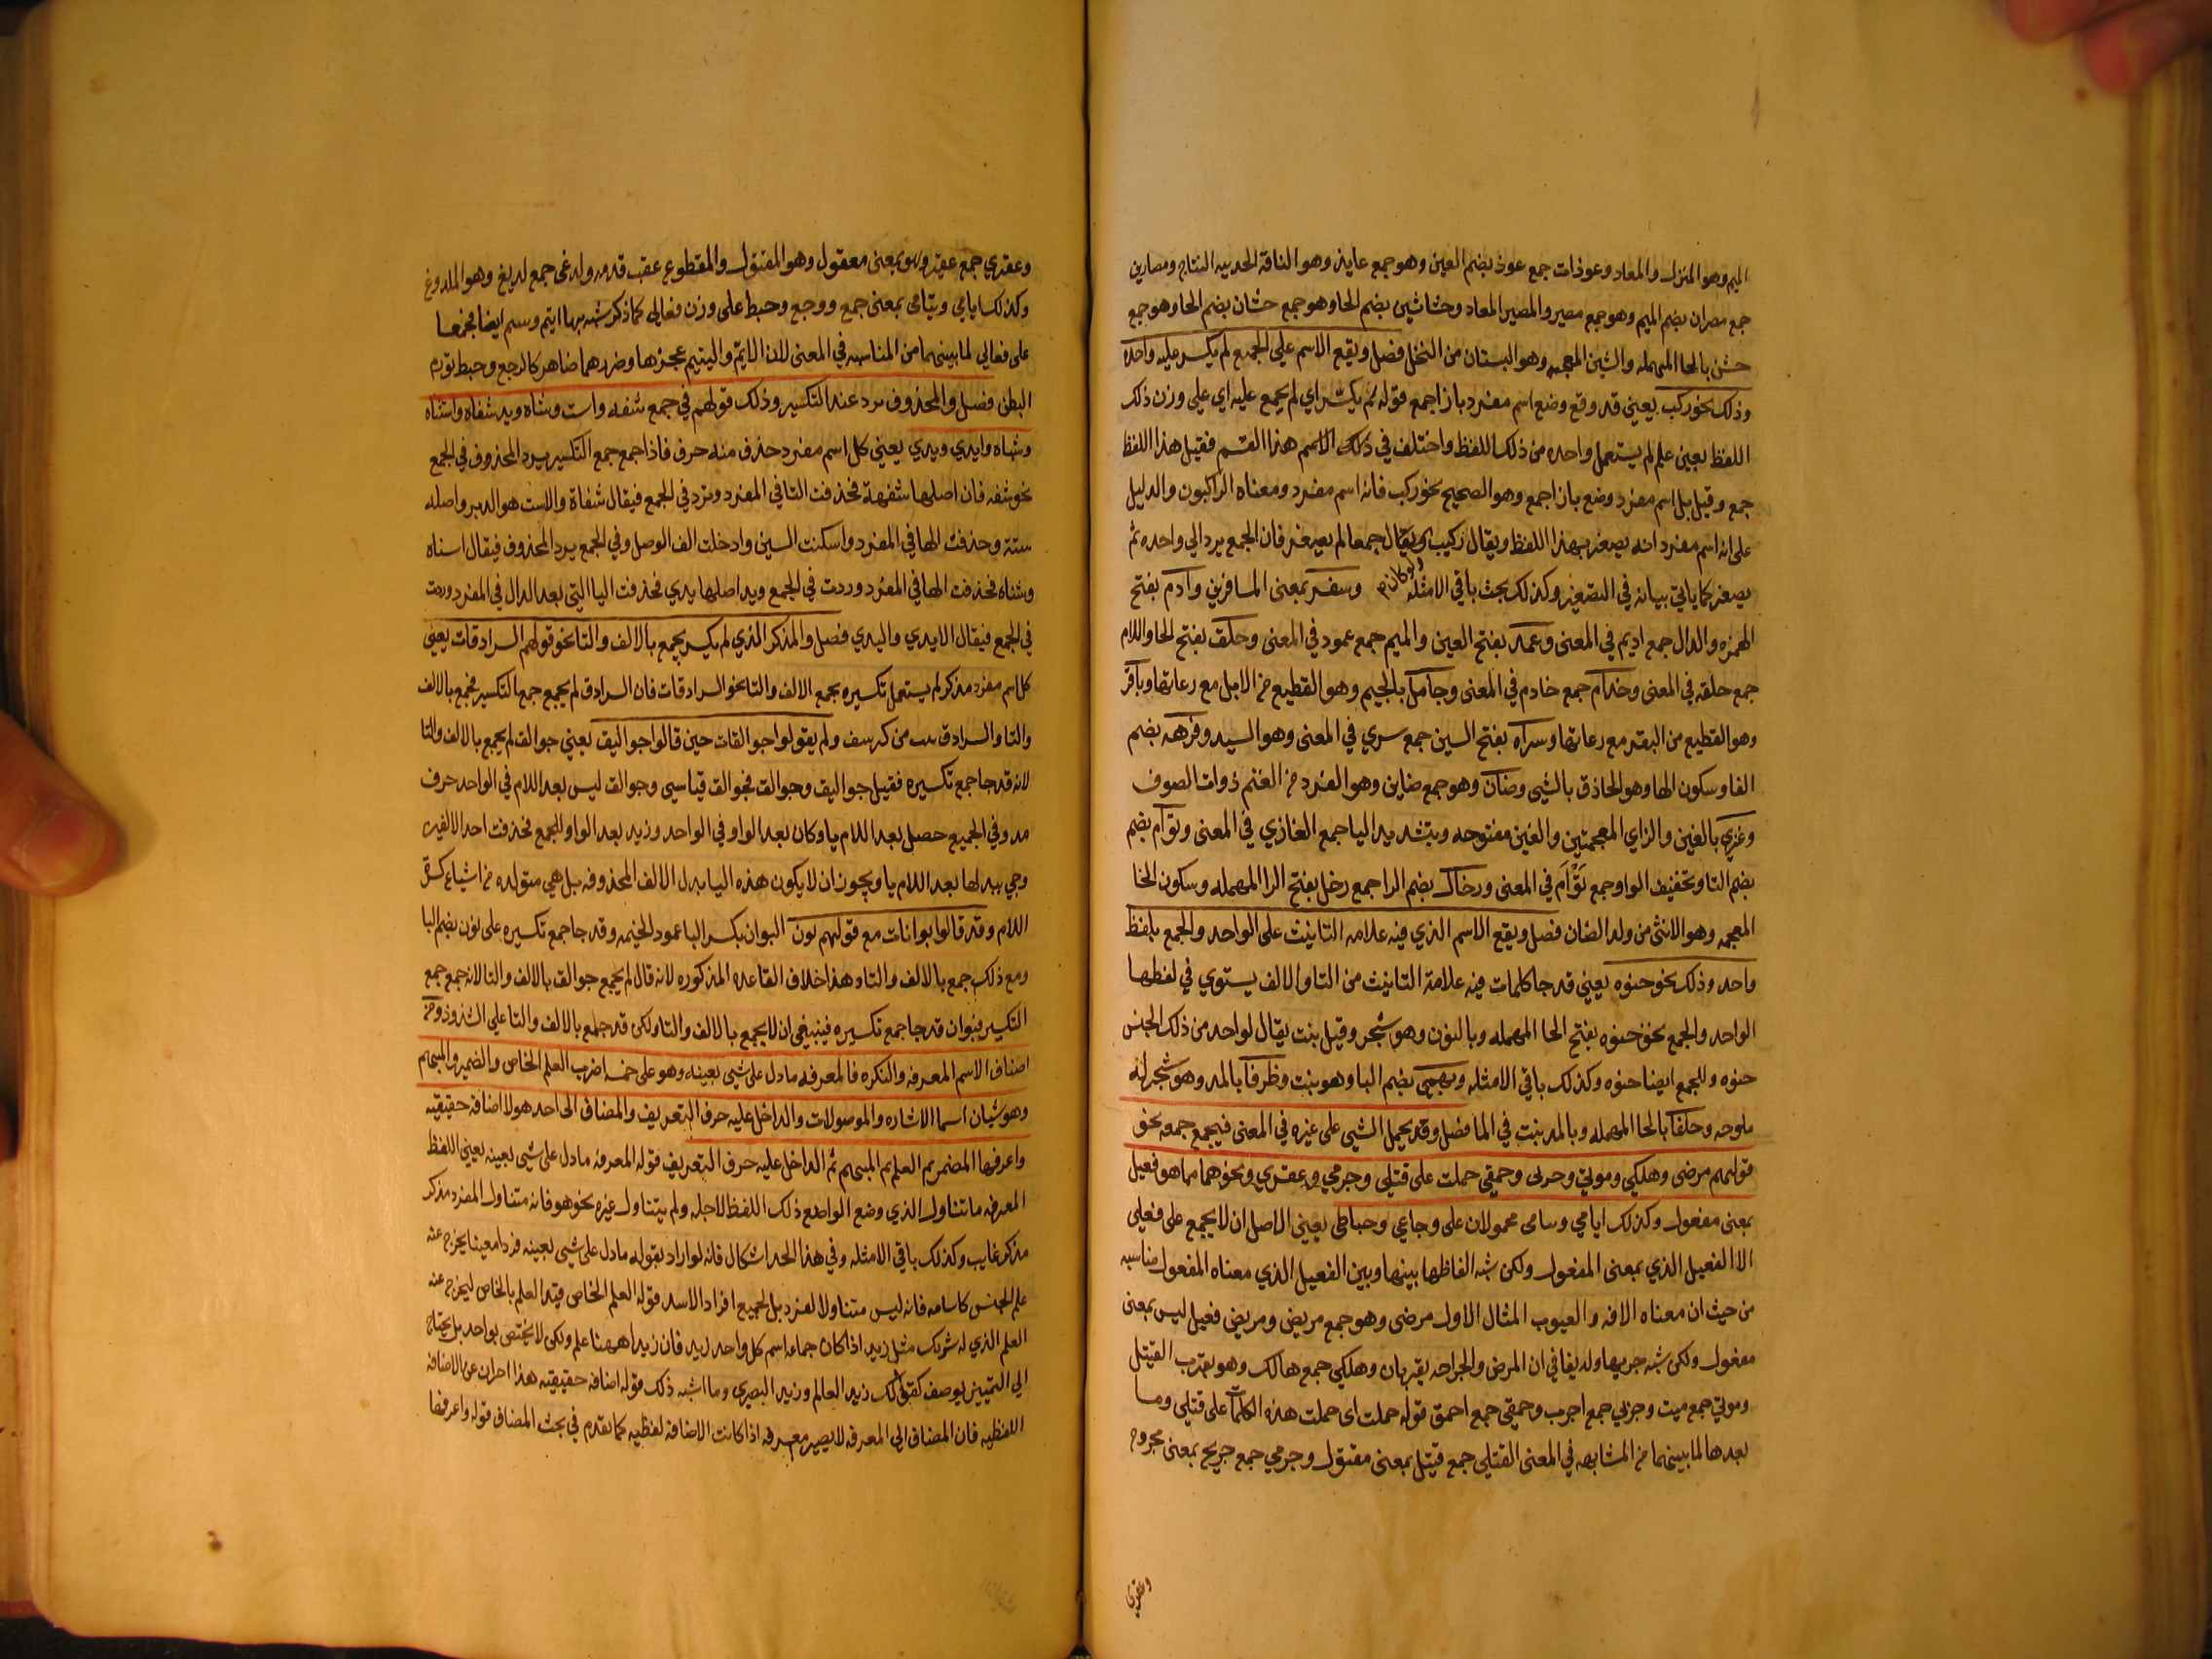 الميم وهو المنزل والمعاد وعوذات جمع عوذ بضم العين وهو جمع عايذ وهو الناقة الحديثه النتاج ومصارين
جمع مصران بضم الميم وهو جمع مصير والمصير المعاد وحشاشين بضم الحا وهو جمع حشان بضم الحا وهو جمع
حشن بالحا المهمله والشين المعجمه وهو البستان من النخل فصل ويقع الاسم على الجميع لم يكسر عليه واحده
وذلك نحو ركب يعني قد وقع وضع اسم مفرد بازا جمع قوله لم يكسر اي لم يجمع عليه اي على وزن ذلك
اللفظ يعني علم لم يستعمل واحده من ذلك اللفظ واختلف في ذلك الاسم هذا القسم فقيل هذا اللفظ
جمع وقيل بل اسم مفرد وضع بازا جمع وهو الصحيح نحو ركب فانه اسم مفرد ومعناه الراكبون والدليل
على انه اسم مفرد انه يصغر بهذا اللفظ ويقال ركيب ولو كان جمعا لم يصغر فان الجمع يرد الى واحده ثم
يصغر كما ياتي بيانه في التصغير وكذلك بحث باقي الامثله وسفر بمعنى المسافرين وادم بفتح
الهمزه والدال جمع اديم في المعنى وعمد بفتح العين والميم جمع عمود في المعنى وحلق بفتح الحا واللام
جمع حلقه في المعنى وخدم جمع خادم في المعنى وجامل بالجيم وهو القطيع من الابل مع رعاتها وباقر
وهو القطيع من البقر مع رعاتها وسراه بفتح السين جمع سري في المعنى وهو السيد وفرهه بضم
الفا وسكون الها وهو الحاذق بالشي وضان وهو جمع ضاين وهو الفرد من الغنم ذوات الصوف
وغزي بالغين والزاي المعجمتين والغين مفتوحه وبتشديد اليا جمع الغازي في المعنى وتوام بضم
بضم التا وتخفيف الواو جمع توام في المعنى ورخال بضم الرا جمع رخل بفتح الرا المهمله وسكون الخا
المعجمه وهو الانثى من ولد الضان فصل ويقع الاسم الذي فيه علامه التانيث على الواحد والجمع بلفظ
واحد وذلك نحو حنوه يعني قد جا كلمات فيه علامة التانيث من التا والالف يستوي في لفظها
الواحد والجمع نحو حنوه بفتح الحا المهمله وبالنون وهو شجر وقيل بنت يقال لواحد من ذلك الجنس
حنوه وللجمع ايضا حنوه وكذلك باقي الامثله وبهمى بضم البا وهو بنت وطرفا بالمد وهو شجر له
ملوحه وحلفا بالحا المهمله وبالمد بنت في الما فصل وقد يحمل الشي على غيره في المعنى فيجمع جمعه نحو
قولهم مرضى وهلكي وموتي وجربى وحمقي حملت على قتلى وجرحي وعقري ونحوهما مما هو فعيل
بمعنى مفعول وكذلك ايامي ويتامى محمولان على وجاعي وحباطي يعني الاصل ان لا يجمع على فعلي
الا الفعيل الذي بمعنى المفعول ولكن شبه الفاظها بينها وبين الفعيل الذي معناه المفعول مناسبه
من حيث ان معناه الافه والعيوب المثال الاول مرضى وهو جمع مريض ومريض فعيل ليس بمعنى
مفعول ولكن شبه جريها ولديغا في ان المرض والجراحه يقربان وهلكي جمع هالك وهو بقرب القتيل
وموتي جمع ميت وجربي جمع اجرب وحمقي جمع احمق قوله حملت اى حملت هذه الكلمات على قتلي وما
بعدها لما بينهما من المشابهه في المعنى القتلى جمع قتيل بمعنى مقتول وجرحي جمع جريح بمعنى مجروح
وعقري
وعقري جمع عقير وهو بمعنى معقول وهو المقتول والمقطوع عقب قدمه ولدغى جمع لديغ وهو الملدوغ
وكذلك ايامي ويتامى بمعنى جمع ووجع وحبط على وزن فعالى كما ذكر شبه بها ايتم ويتيم ايضا فجمعا
على فعالي لما بينهما من المناسبه في المعنى لان الايم واليتيم عجزها وضررهما ضاهر كالوجع وحبط تورم
البطن فصل والمحذوف يرد عند التكسير وذلك قولهم في جمع شفه واست وشاه ويد شفاه واستاه
وشياه وايدي ويدي يعني كل اسم مفرد حذف منه حرف فاذا جمع جمع التكسير يرد المحذوف في الجمع
نحو شفه فان اصلها شفهة فحذفت التا في المفرد وترد في الجمع فيقال شفاة والاست هو الدبر واصله
ستة وحذفت الها في المفرد واسكنت السين وادخلت الف الوصل وفي الجمع يرد المحذوف فيقال استاه
وشاه فحذفت الها في المفرد وردت في الجمع ويد اصلها يدي فحذفت اليا التي بعد الدال في المفرد وردت
في الجمع فيقال الايدي واليدي فصل والمذكر الذي لم يكسر يجمع بالالف والتا نحو قولهم السرادقات يعني
كل اسم مفرد مذكر لم يستعمل تكسيره بجمع الالف والتا نحو السرادقات فان السرادق لم يجمع جمع التكسير فجمع بالالف
والتا والسرادق بيت من كرسف ولم يقولوا جوالقات حين قالوا جواليق يعني جوالق لم يجمع بالالف والتا
لانه قد جا جمع تكسيره فقيل جواليق وجوالق فجوالق قياسي وجوالق ليس بعد اللام في الواحد حرف
مد وفي الجميع حصل بعد اللام يا وكان بعد الواو في الواحد وزيد بعد الواو الجمع فحذفت احد الالفين
وجي بيد لها بعد اللام يا ويجوز ان لا يكون هذه اليا بدل الالف المحذوفه بل هي متولده من اشباع كسرة
اللام وقد قالوا بوانات مع قولهم بون البوان بكسر البا عمود الخيمه وقد جا جمع تكسيره على بون بضم البا
ومع ذلك جمع بالالف والتا وهذا خلاف القاعده المذكوره لانه قال لم يجمع جوالق بالالف والتا لانه جمع جمع
التكسير فبوان قد جا جمع تكسيره فينبغي ان لا يجمع بالالف والتا ولكن قد جمع بالالف والتا على الشذوذ ومن
اصناف الاسم المعرفه والنكره فالمعرفه ما دل على شي بعينه وهو على خمسه اضرب العلم الخاص والضمير والمبهم
وهو شيان اسما الاشاره والموصولات والداخل عليه حرف التعريف والمضاف الى احد هولا اضافه حقيقيه
واعرفها المضمر ثم العلم ثم المبهم ثم الداخل عليه حرف التعريف قوله المعرفه ما دل على شي بعينه يعني اللفظ
المعرفه ما تناول الذي وضع الواضع ذلك اللفظ لاجله ولم يتناول غيره نحو هو فانه متناول المفرد مذكر
مذكر غايب وكذلك باقي الامثله وفي هذا الحد اشكال فانه لو اراد بقوله ما دل على شي بعينه فردا معينا يخرج عنه
علم الجنس كاسامه فانه ليس متناولا لفرد بل لجميع افراد الاسد قوله العلم الخاص قيد العلم بالخاص ليخرج عنه
العلم الذي له شريك مثل زيد اذا كان جماعه اسم كل واحد زيد فان زيدا ههنا علم ولكن لا يختص بواحد بل يحتاج
الى التمييز بوصف كقولك زيد العالم وزيد البصري وما اشبه ذلك قوله اضافه حقيقيه هذا احتراز عن الاضافه
اللفظيه فان المضاف الى المعرفه لا يصير معرفه اذا كانت الاضافه لفظيه كما تقدم في بحث المضاف قوله واعرفها